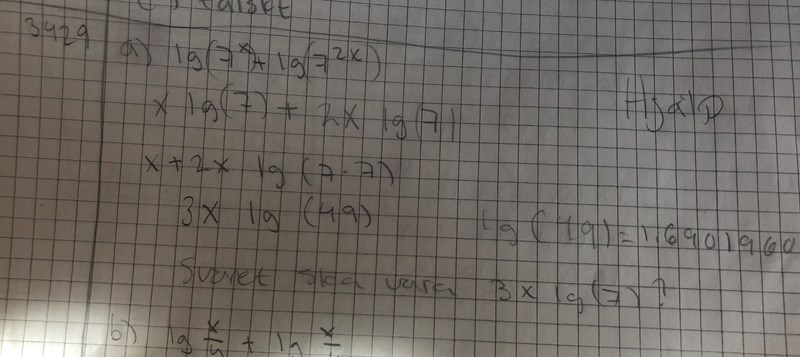 3429 a) lg(7^x)+lg(7^2x)
x lg(7) + 2x lg(7)
Hjälp
x+2x lg (7·7)
3x lg (49)
lg (49)=1,6901960
Svaret ska vara 3x lg(7)?
b) lg x/4 + lg x